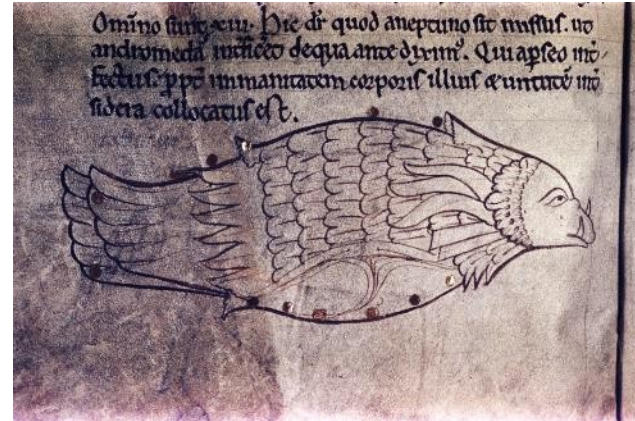 Omĩno sunt xiii. Hic dr̃ quod aneptuno sit missus. ut
andromedã int̃ficeet dequa ante diximꝰ. Qui apseo int̃
fectus. ꝓpt̃ inmanitatem corporis illius & uirtutẽ int̃
sidera collocatus est.